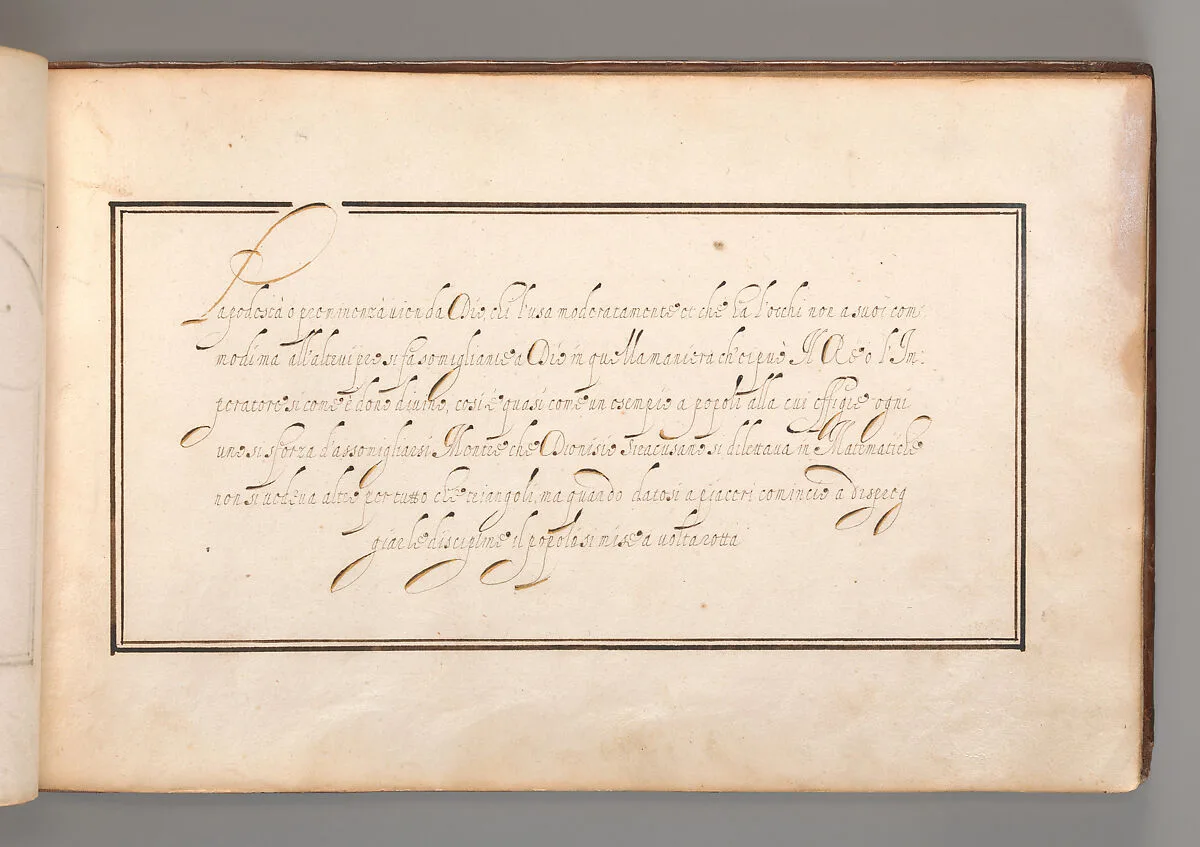 La podestà o preminenza vien da Dio, chi l'usa moderatamente et che ha l'occhi non a suoi com:
modi ma all'altrui pro si fa somigliante a Dio in quella maniera ch'ei può Il Re o l'Im:
peratore si come è dono divino, cosi é quasi come un esempio a popoli alla cui effigie ogni
uno si sforza d'assomigliarsi Mentre che Dionisio Siracusano si dilettava in Matematiche
non si vedeva altro per tutto che triangoli, ma quando datosi a piaceri comincio a dispreg
giar le discipline il popolo si mise a volta rotta